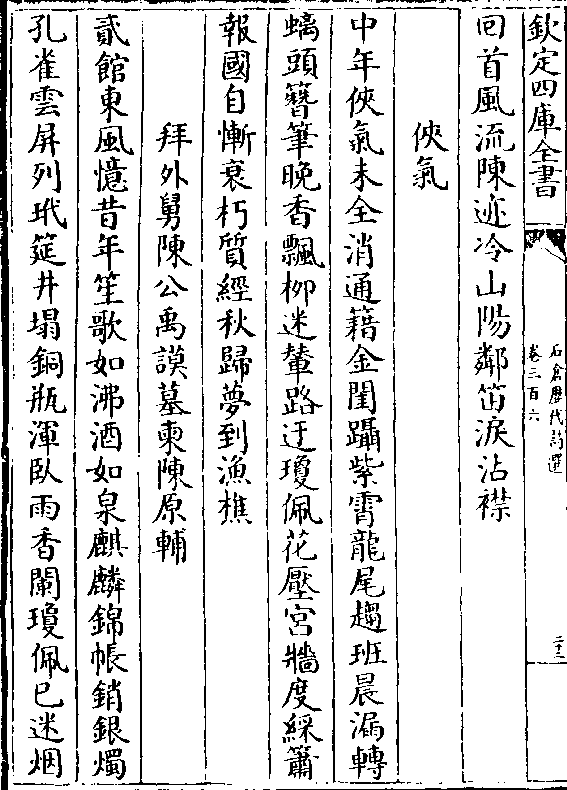 欽定四庫全書
石倉歴代詩選
卷三百六
二十二
回首風流陳迹冷山陽鄰笛淚沾襟
俠氣
中年俠氣未全消通籍金閨躡紫霄龍尾趨班晨漏轉
螭頭簪筆晚香飄栁迷輦路迂瓊佩花壓宮牆度綵簫
報國自慚衰朽質經秋歸夢到漁樵
拜外舅陳公禹謨墓柬陳原輔
貳館東風憶昔年笙歌如沸酒如泉麒麟錦帳銷銀燭
孔雀雲屏列玳筵井塌銅瓶渾臥雨香闌瓊佩已迷烟